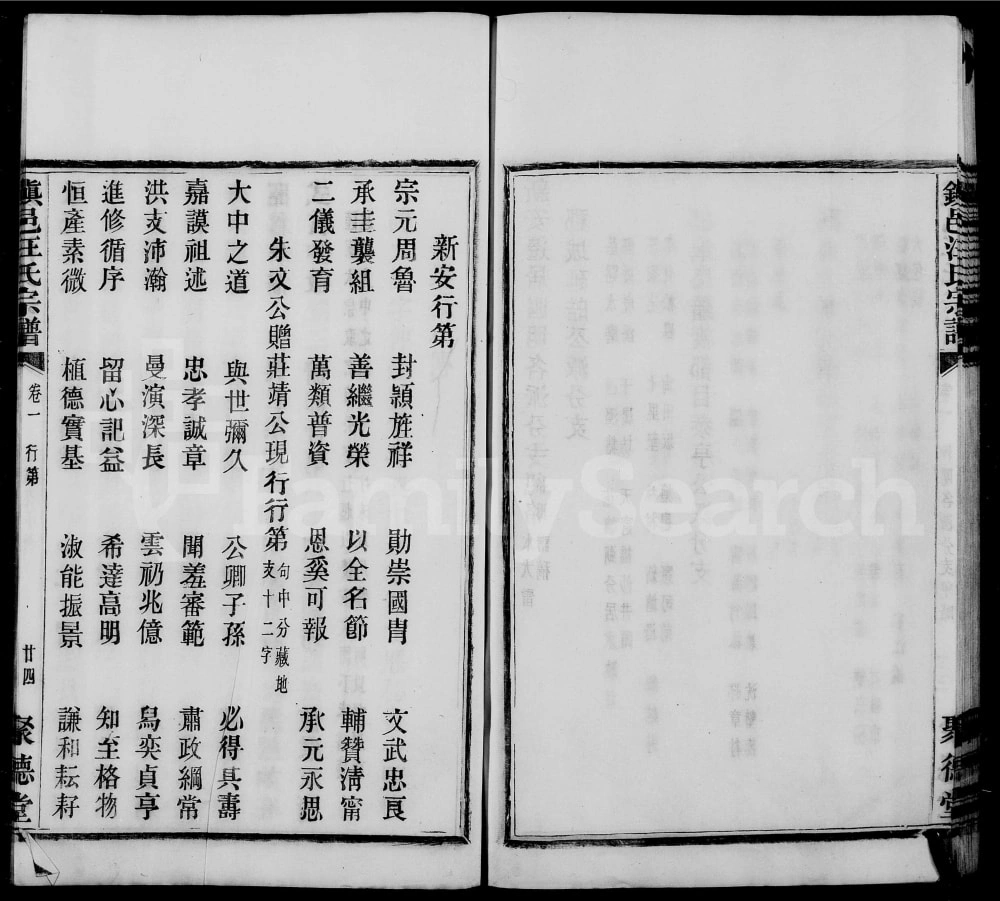 新安行第
宗元周魯 封潁旌祥 勛崇國胄 文武忠良
承圭襲組 善繼光榮 以全名節 輔贊淸甯
二儀發育 萬類普資 恩奚可報 承元永思
朱文公贈莊靖公現行行第 句中分藏地支十二字
大中之道 與世彌久 公卿子孫 必得其壽
嘉謨祖述 忠孝誠章 聞羞審範 肅政綱常
洪支沛瀚 曼演深長 雲礽兆億 舄奕貞亨
進修循序 留心記益 希達高明 知至格物
恒產素微 植德實基 淑能振景 謙和耘耔
汪氏宗譜 卷一 行第 廿四 聚德堂
邑汪氏宗譜
聚德堂
FamilySearch